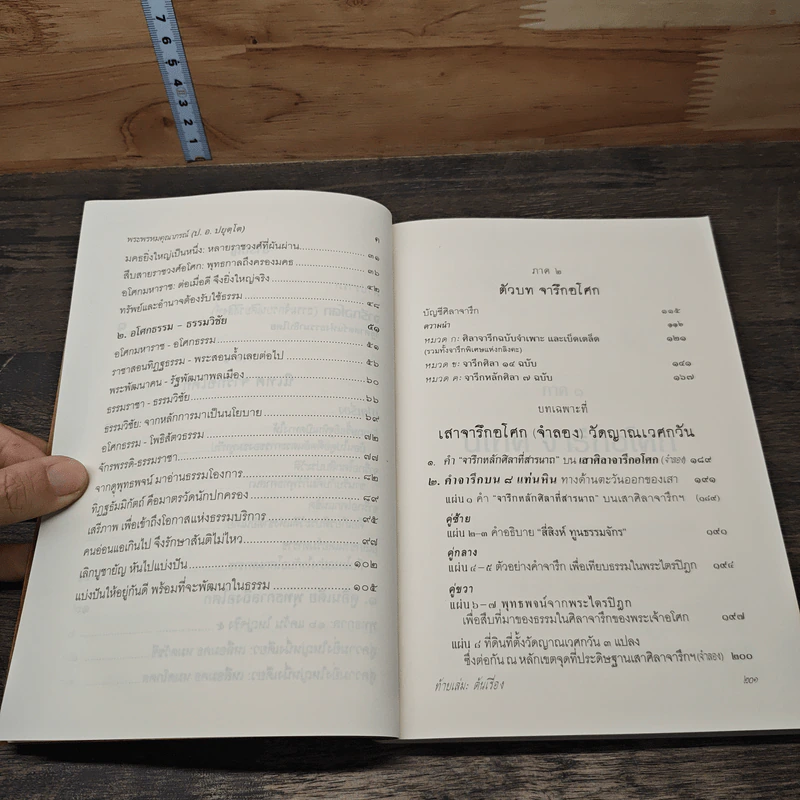 7
6
5
4
3
2
1
พระพรหมคุณาภรณ์ (ป. อ. ปยุตฺโต) ๓
มคธยิ่งใหญ่เป็นหนึ่ง: หลายราชวงศ์ที่ผันผ่าน ๓๑
สืบสายราชวงศ์อโศก: พุทธกาลถึงครองมคธ ๓๖
อโศกมหาราช: ต่อเมื่อดี จึงยิ่งใหญ่จริง ๔๒
ทรัพย์และอำนาจต้องรับใช้ธรรม ๔๘
๒. อโศกธรรม – ธรรมวิชัย ๕๑
อโศกมหาราช - อโศกธรรม
ราชาสอนทิฏฐธรรม - พระสอนล้ำเลยต่อไป ๕๖
พระพัฒนาคน - รัฐพัฒนาพลเมือง ๖๐
ธรรมราชา - ธรรมวิชัย ๖๖
ธรรมวิชัย: จากหลักการมาเป็นนโยบาย ๖๙
อโศกธรรม - โพธิสัตวธรรม ๗๒
จักรพรรดิ-ธรรมราชา ๗๗
จากดุพุทธพจน์ มาอ่านธรรมโองการ ๘๒
ทิฏฐธัมมิกัตถ์ คือมาตรวัดนักปกครอง ๘๙
เสรีภาพ เพื่อเข้าถึงโอกาสแห่งธรรมบริการ ๙๕
คนอ่อนแอเกินไป จึงรักษาสันติไม่ไหว ๙๗
เลิกบูชายัญ หันไปแบ่งปัน ๑๐๒
แบ่งปันให้อยู่กันดี พร้อมที่จะพัฒนาในธรรม ๑๐๕
ภาค ๒
ตัวบท จารึกอโศก
บัญชีศิลาจารึก ๑๑๕
ความนำ ๑๑๖
หมวด ก: ศิลาจารึกฉบับจำเพาะ และเบ็ดเตล็ด ๑๒๑
(รวมทั้งจารึกพิเศษแห่งกลิงคะ)
หมวด ข: จารึกศิลา ๑๔ ฉบับ ๑๔๑
หมวด ค: จารึกหลักศิลา ๗ ฉบับ ๑๖๗
บทเฉพาะที่
เสาจารึกอโศก (จำลอง) วัดญาณเวศกวัน
๑. คำ “จารึกหลักศิลาที่สารนาถ” บน เสาศิลาจารึกอโศก (จำลอง) ๑๘๙
๒. คำจารึกบน ๘ แท่นหิน ทางด้านตะวันออกของเสา ๑๙๑
แผ่น ๑ คำ “จารึกหลักศิลาที่สารนาถ” บนเสาศิลาจารึกฯ (๑๘๙)
คู่ซ้าย
แผ่น ๒–๓ คำอธิบาย “สี่สิงห์ ทูนธรรมจักร” ๑๙๑
คู่กลาง
แผ่น ๔–๕ ตัวอย่างคำจารึก เพื่อเทียบธรรมในพระไตรปิฎก ๑๙๔
คู่ขวา
แผ่น ๖–๗ พุทธพจน์จากพระไตรปิฎก
เพื่อสืบที่มาของธรรมในศิลาจารึกของพระเจ้าอโศก ๑๙๗
แผ่น ๘ ที่ดินที่ตั้งวัดญาณเวศกวัน ๓ แปลง
ซึ่งต่อกัน ณ หลักเขตจุดที่ประดิษฐานเสาศิลาจารึกฯ (จำลอง) ๒๐๐
ท้ายเล่ม: ต้นเรื่อง ๒๐๑